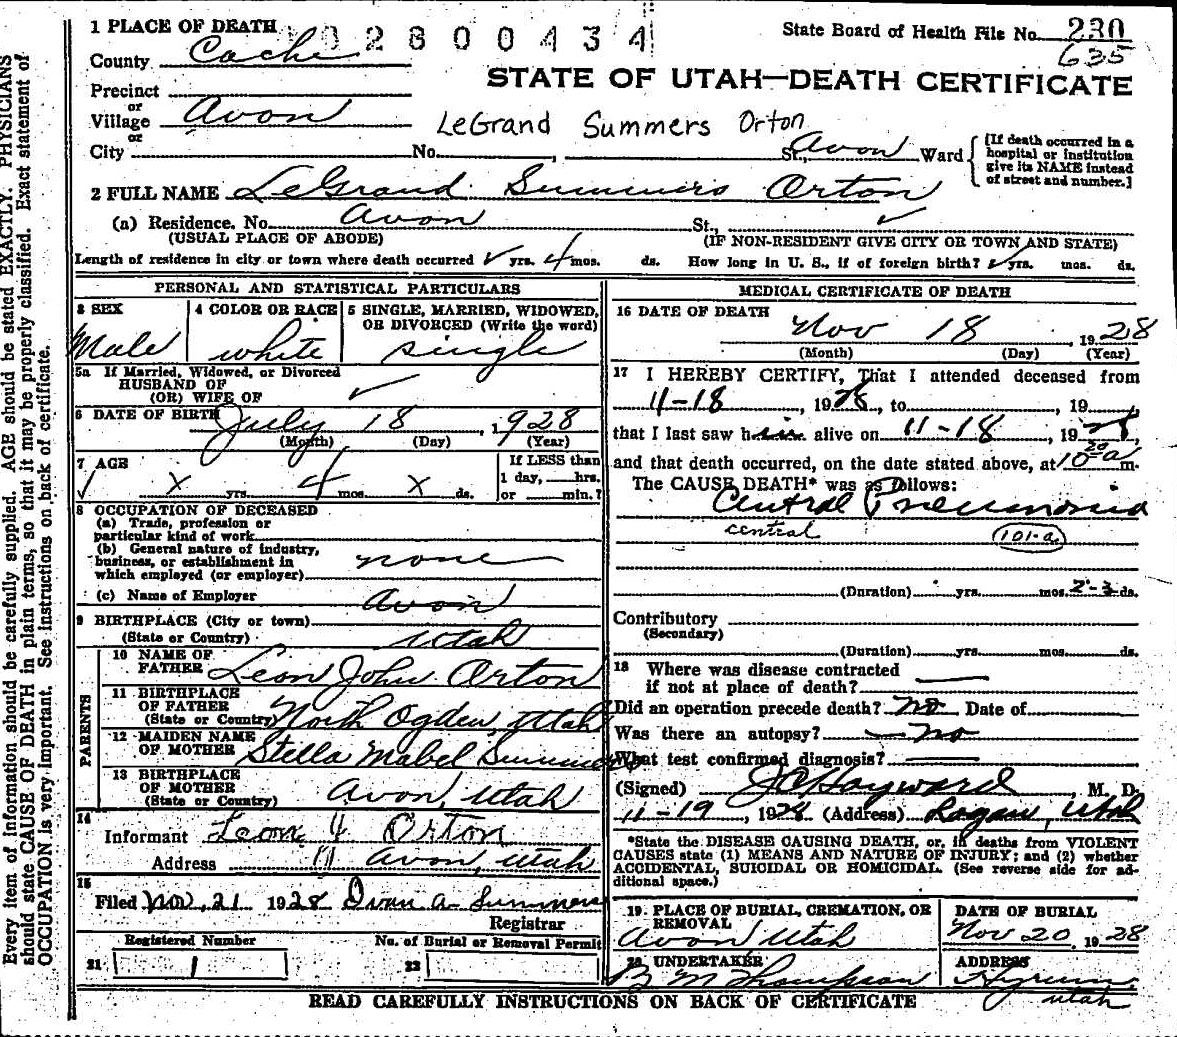 1 PLACE OF DEATH
02800434
State Board of Health File No. 230
635
County Cache
STATE OF UTAH—DEATH CERTIFICATE
Precinct
or
Village Avon
LeGrand Summers Orton
or
City No. St., Avon Ward
[If death occurred in a hospital or institution give its NAME instead of street and number.]
2 FULL NAME LeGrand Summers Orton
(a) Residence. No. Avon St., ✓
(USUAL PLACE OF ABODE) (IF NON-RESIDENT GIVE CITY OR TOWN AND STATE)
Length of residence in city or town where death occurred ✓ yrs. 4 mos. ds. How long in U. S., if of foreign birth? ✓ yrs. mos. ds.
PERSONAL AND STATISTICAL PARTICULARS
3 SEX
Male
4 COLOR OR RACE
white
5 SINGLE, MARRIED, WIDOWED,
OR DIVORCED (Write the word)
single
5a If Married, Widowed, or Divorced
HUSBAND OF
(OR) WIFE OF ✓
6 DATE OF BIRTH July 18, 1928
(Month) (Day) (Year)
7 AGE
✓ X yrs. 4 mos. X ds.
If LESS than
1 day, hrs.
or min.?
8 OCCUPATION OF DECEASED
(a) Trade, profession or
particular kind of work
(b) General nature of industry,
business, or establishment in
which employed (or employer) none
(c) Name of Employer
Avon
9 BIRTHPLACE (City or town)
(State or Country) Utah
PARENTS
10 NAME OF
FATHER Leon John Orton
11 BIRTHPLACE
OF FATHER
(State or Country) North Ogden, Utah
12 MAIDEN NAME
OF MOTHER Stella Mabel Summers
13 BIRTHPLACE
OF MOTHER
(State or Country) Avon, Utah
14
Informant Leon J Orton
Address Avon, Utah
15
Filed Nov. 21 1928 Ivan A. Summers
Registrar
Registered Number
No. of Burial or Removal Permit
21 1
22
MEDICAL CERTIFICATE OF DEATH
16 DATE OF DEATH
Nov 18, 1928
(Month) (Day) (Year)
17 I HEREBY CERTIFY, That I attended deceased from
11-18, 1928, to , 19
that I last saw him alive on 11-18, 1928,
and that death occurred, on the date stated above, at 10 20 a m.
The CAUSE DEATH* was as follows:
Central Pneumonia
central 101-a
(Duration) yrs. mos. 2-3 ds.
Contributory
(Secondary)
(Duration) yrs. mos. ds.
18 Where was disease contracted
if not at place of death?
Did an operation precede death? no Date of
Was there an autopsy? no
What test confirmed diagnosis?
(Signed) J C Hayward, M. D.
11-19, 1928 (Address) Logan, Utah
*State the DISEASE CAUSING DEATH, or, in deaths from VIOLENT
CAUSES state (1) MEANS AND NATURE OF INJURY; and (2) whether
ACCIDENTAL, SUICIDAL OR HOMICIDAL. (See reverse side for ad-
ditional space.)
19 PLACE OF BURIAL, CREMATION, OR
REMOVAL
Avon Utah
DATE OF BURIAL
Nov 20, 1928
20 UNDERTAKER
B M Thompson
ADDRESS
Hyrum
Utah
READ CAREFULLY INSTRUCTIONS ON BACK OF CERTIFICATE
Every item of information should be carefully supplied. AGE should be stated EXACTLY. PHYSICIANS
should state CAUSE OF DEATH in plain terms, so that it may be properly classified. Exact statement of
OCCUPATION is very important. See instructions on back of certificate.